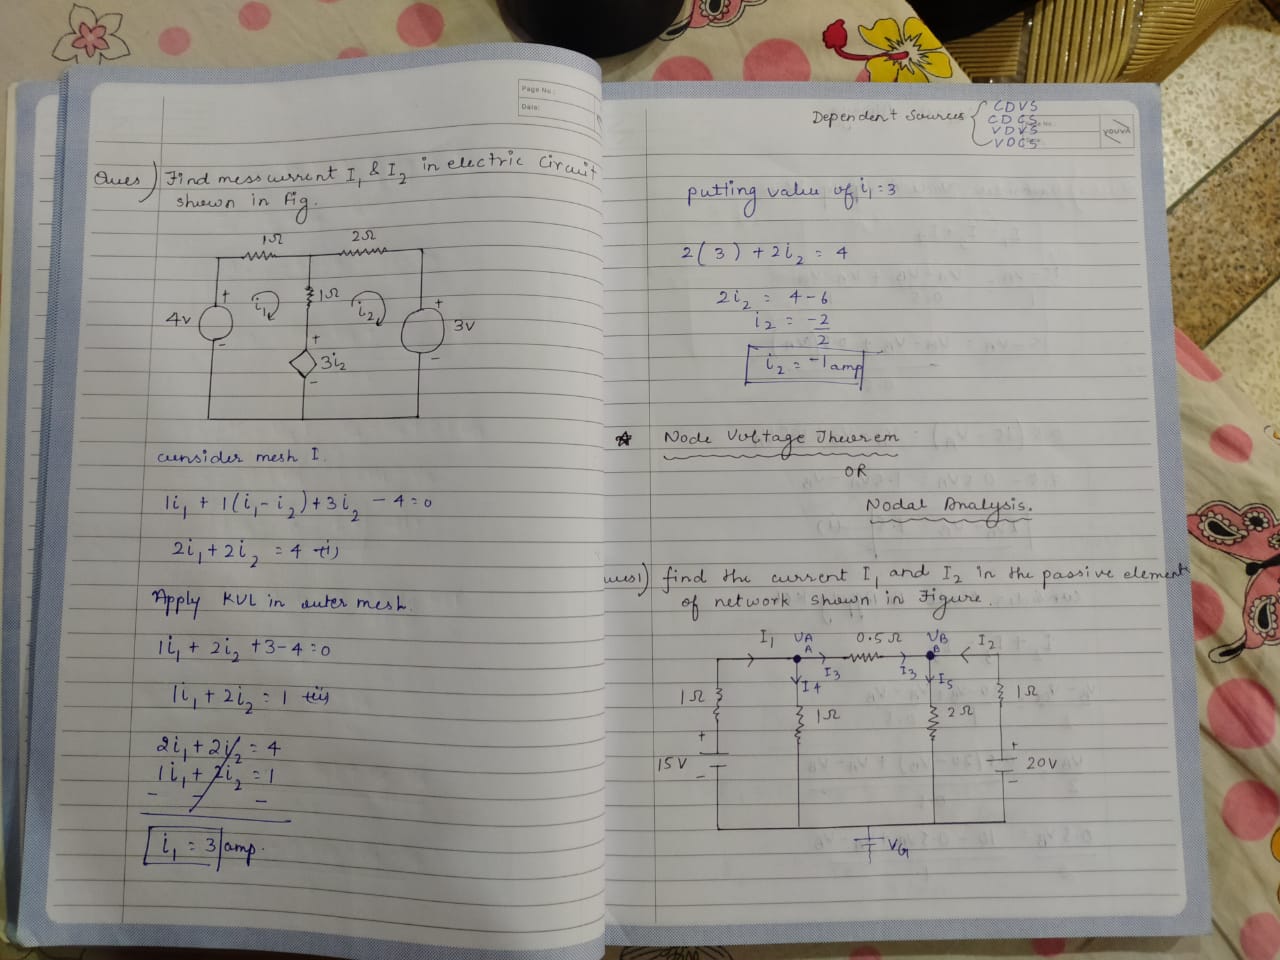 Page No:
Date:
Ques) Find mess current I1 & I2 in electric Circuit
shown in Fig.
1Ω 2Ω
1Ω
i1 i2
4v + - + - 3i2 + - 3v
consider mesh I.
1i1 + 1(i1 - i2) + 3i2 - 4 = 0
2i1 + 2i2 = 4 (i)
Apply KVL in outer mesh.
1i1 + 2i2 + 3 - 4 = 0
1i1 + 2i2 = 1 (ii)
2i1 + 2i2 = 4
1i1 + 2i2 = 1
- - -
i1 = 3 amp.
Dependent sources { CDVS
CDCS
VDVS
VDCS
YOUVA
putting value of i1 = 3
2(3) + 2i2 = 4
2i2 = 4 - 6
i2 = -2
2
i2 = -1 amp
Node Voltage Theorem
OR
Nodal Analysis.
Ques1) find the current I1 and I2 in the passive element
of network shown in Figure.
I1 VA 0.5Ω VB I2
A B
I3 I3
I4 I5
1Ω 1Ω 2Ω 1Ω
15V + - + - 20V
VG